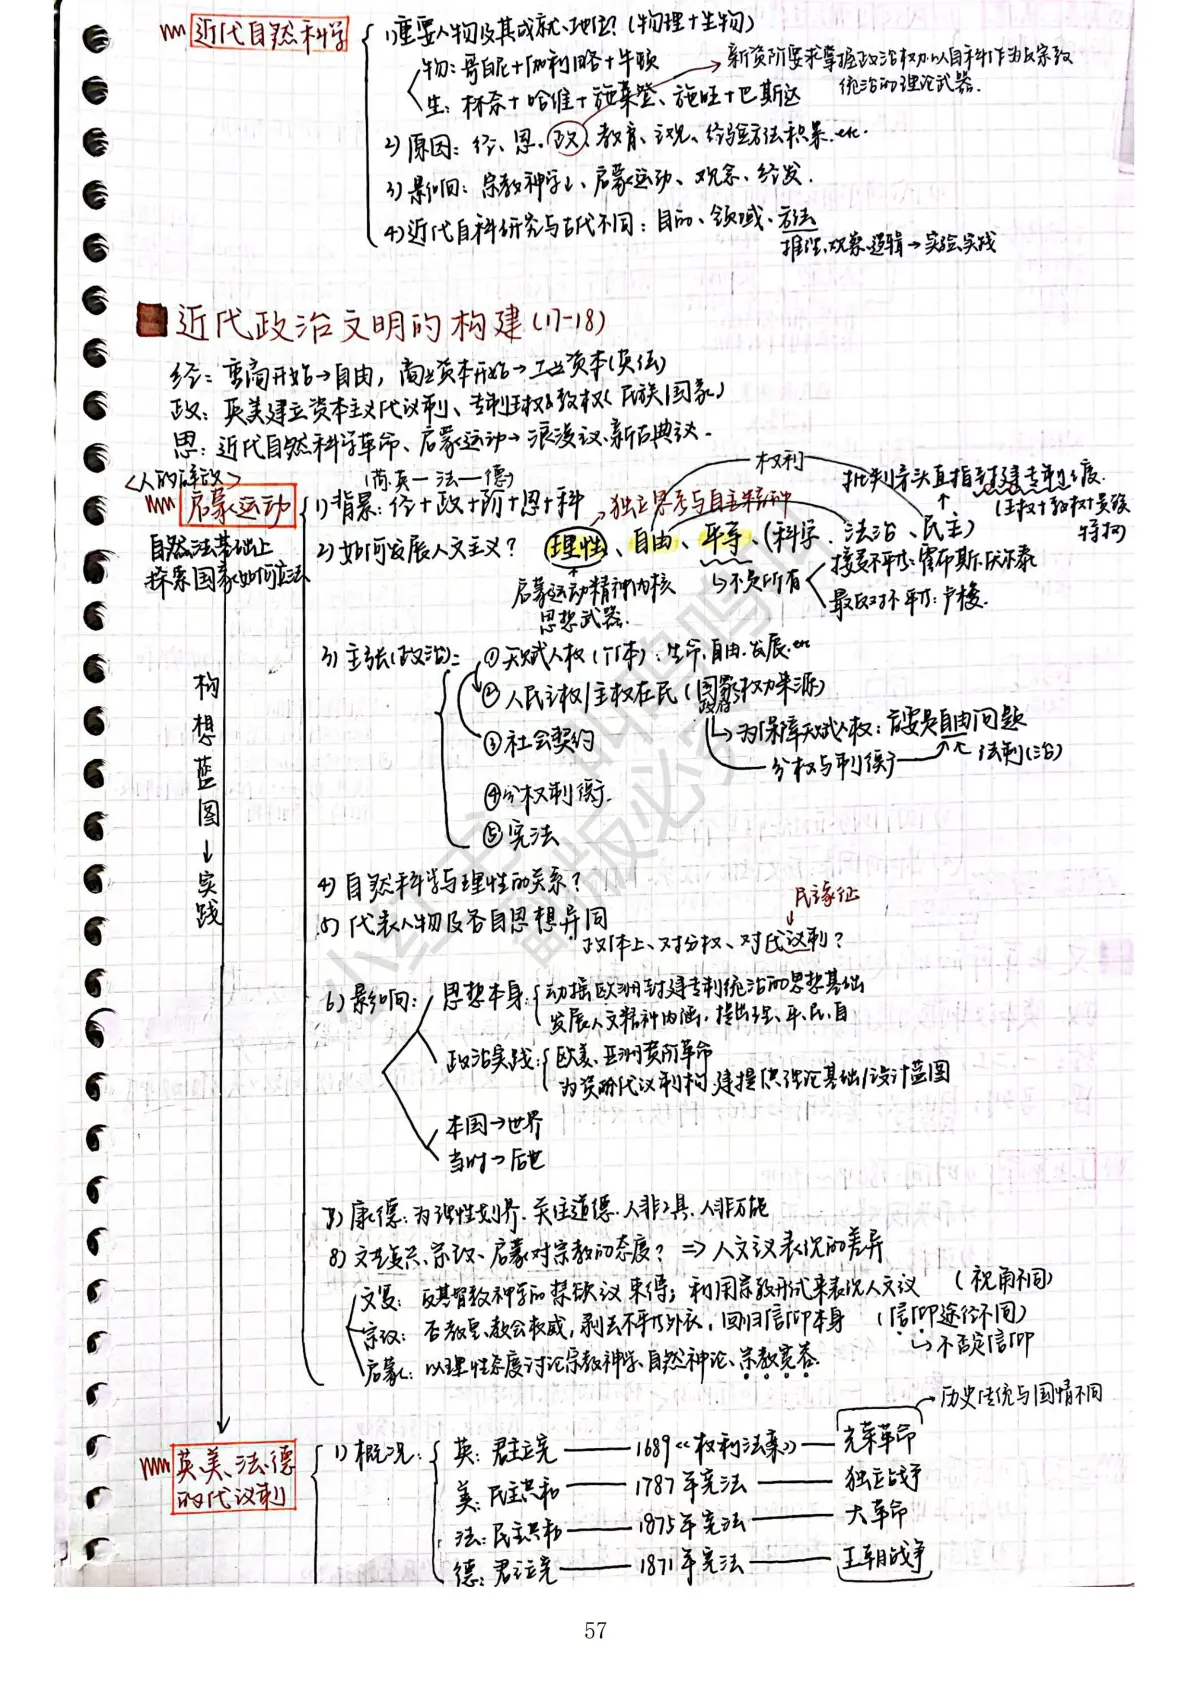 近代自然科学
1)重要人物及其成就、地位?(物理+生物)
物:哥白尼+伽利略+牛顿
新资阶要求掌握政治权力,以自科作为反宗教
统治的理论武器.
生:林奈+哈维+施莱登、施旺+巴斯达
2)原因:经、思、政、教育、主观、经验方法积累.etc.
3)影响:宗教神学↓、启蒙运动、观念、经发.
4)近代自科研究与古代不同:目的、领域、方法
推理、观察、逻辑→实验实践
近代政治文明的构建(17-18)
经:重商开始→自由,商业资本开始→工业资本(英法)
政:英美建立资本主义代议制、专制王权&教权(民族国家)
思:近代自然科学革命、启蒙运动→浪漫主义、新古典主义.
<人的解放>
启蒙运动
自然法基础上
探索国家如何立法
构想蓝图→实践
(荷.英—法—德)
1)背景:经+政+阶+思+科
独立思考与自主精神
权利
批判矛头直指封建专制制度.
(王权+教权+贵族
特权)
2)如何发展人文主义?
理性、自由、平等、(科学、法治、民主)
启蒙运动精神内核
思想武器.
不负所有
接受不平等:霍布斯.伏尔泰
最反对不平等:卢梭.
3)主张(政治):
①天赋人权(个体):生命.自由.发展.etc
②人民主权/主权在民(国家权力来源)
政府
为保障天赋人权:首要是自由问题
③社会契约
分权与制衡
法制(治)
④分权制衡.
⑤宪法
4)自然科学与理性的关系?
5)代表人物及各自思想异同
政体上、对分权、对代议制?
民主象征
6)影响:
思想本身:
动摇欧洲封建专制统治的思想基础
发展人文精神内涵,提出理、平、民、自
政治实践:
欧美、亚洲资阶革命
为资阶代议制构建提供理论基础/设计蓝图
本国→世界
当时→后世
7)康德:为理性划界.关注道德.人非工具.人非万能
8)文艺复兴、宗改、启蒙对宗教的态度?⇒人文主义表现的差异
文复:反基督教神学的禁欲主义束缚;利用宗教形式来表现人文主义 (视角不同)
宗改:否教皇、教会权威,剥去不平等外衣,回归信仰本身 (信仰途径不同)
不否定信仰
启蒙:以理性态度讨论宗教神学、自然神论、宗教宽容.
历史传统与国情不同
英、美、法、德
的代议制
1)概况:
英:君主立宪——1689《权利法案》——光荣革命
美:民主共和——1787年宪法——独立战争
法:民主共和——1875年宪法——大革命
德:君主立宪——1871年宪法——王朝战争
57